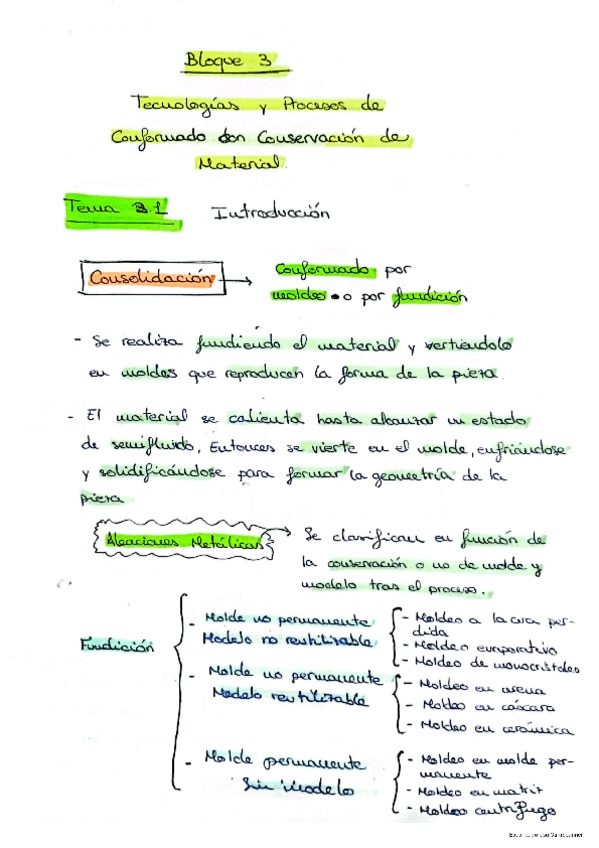 Bloque 3
Tecnologías y Procesos de
Conformado con Conservación de
Material.
Tema 3.1 Introducción
Consolidación → Conformado por
moldeo o por fundición
- Se realiza fundiendo el material y vertiéndolo
en moldes que reproducen la forma de la pieza.
- El material se calienta hasta alcanzar un estado
de semifluido, Entonces se vierte en el molde, enfriándose
y solidificándose para formar la geometría de la
pieza
Aleaciones Metálicas → Se clasifican en función de
la conservación o no de molde y
modelo tras el proceso.
Fundición
- Molde no permanente
Modelo no reutilizable
- Moldeo a la cera per-
dida
- Moldeo evaporativo
- Moldeo de monocristales
- Molde no permanente
Modelo reutilizable
- Moldeo en arena
- Moldeo en cáscara
- Moldeo en cerámica
- Molde permanente
Sin modelo
- Moldeo en molde per-
manente
- Moldeo en matriz
- Moldeo centrífugo